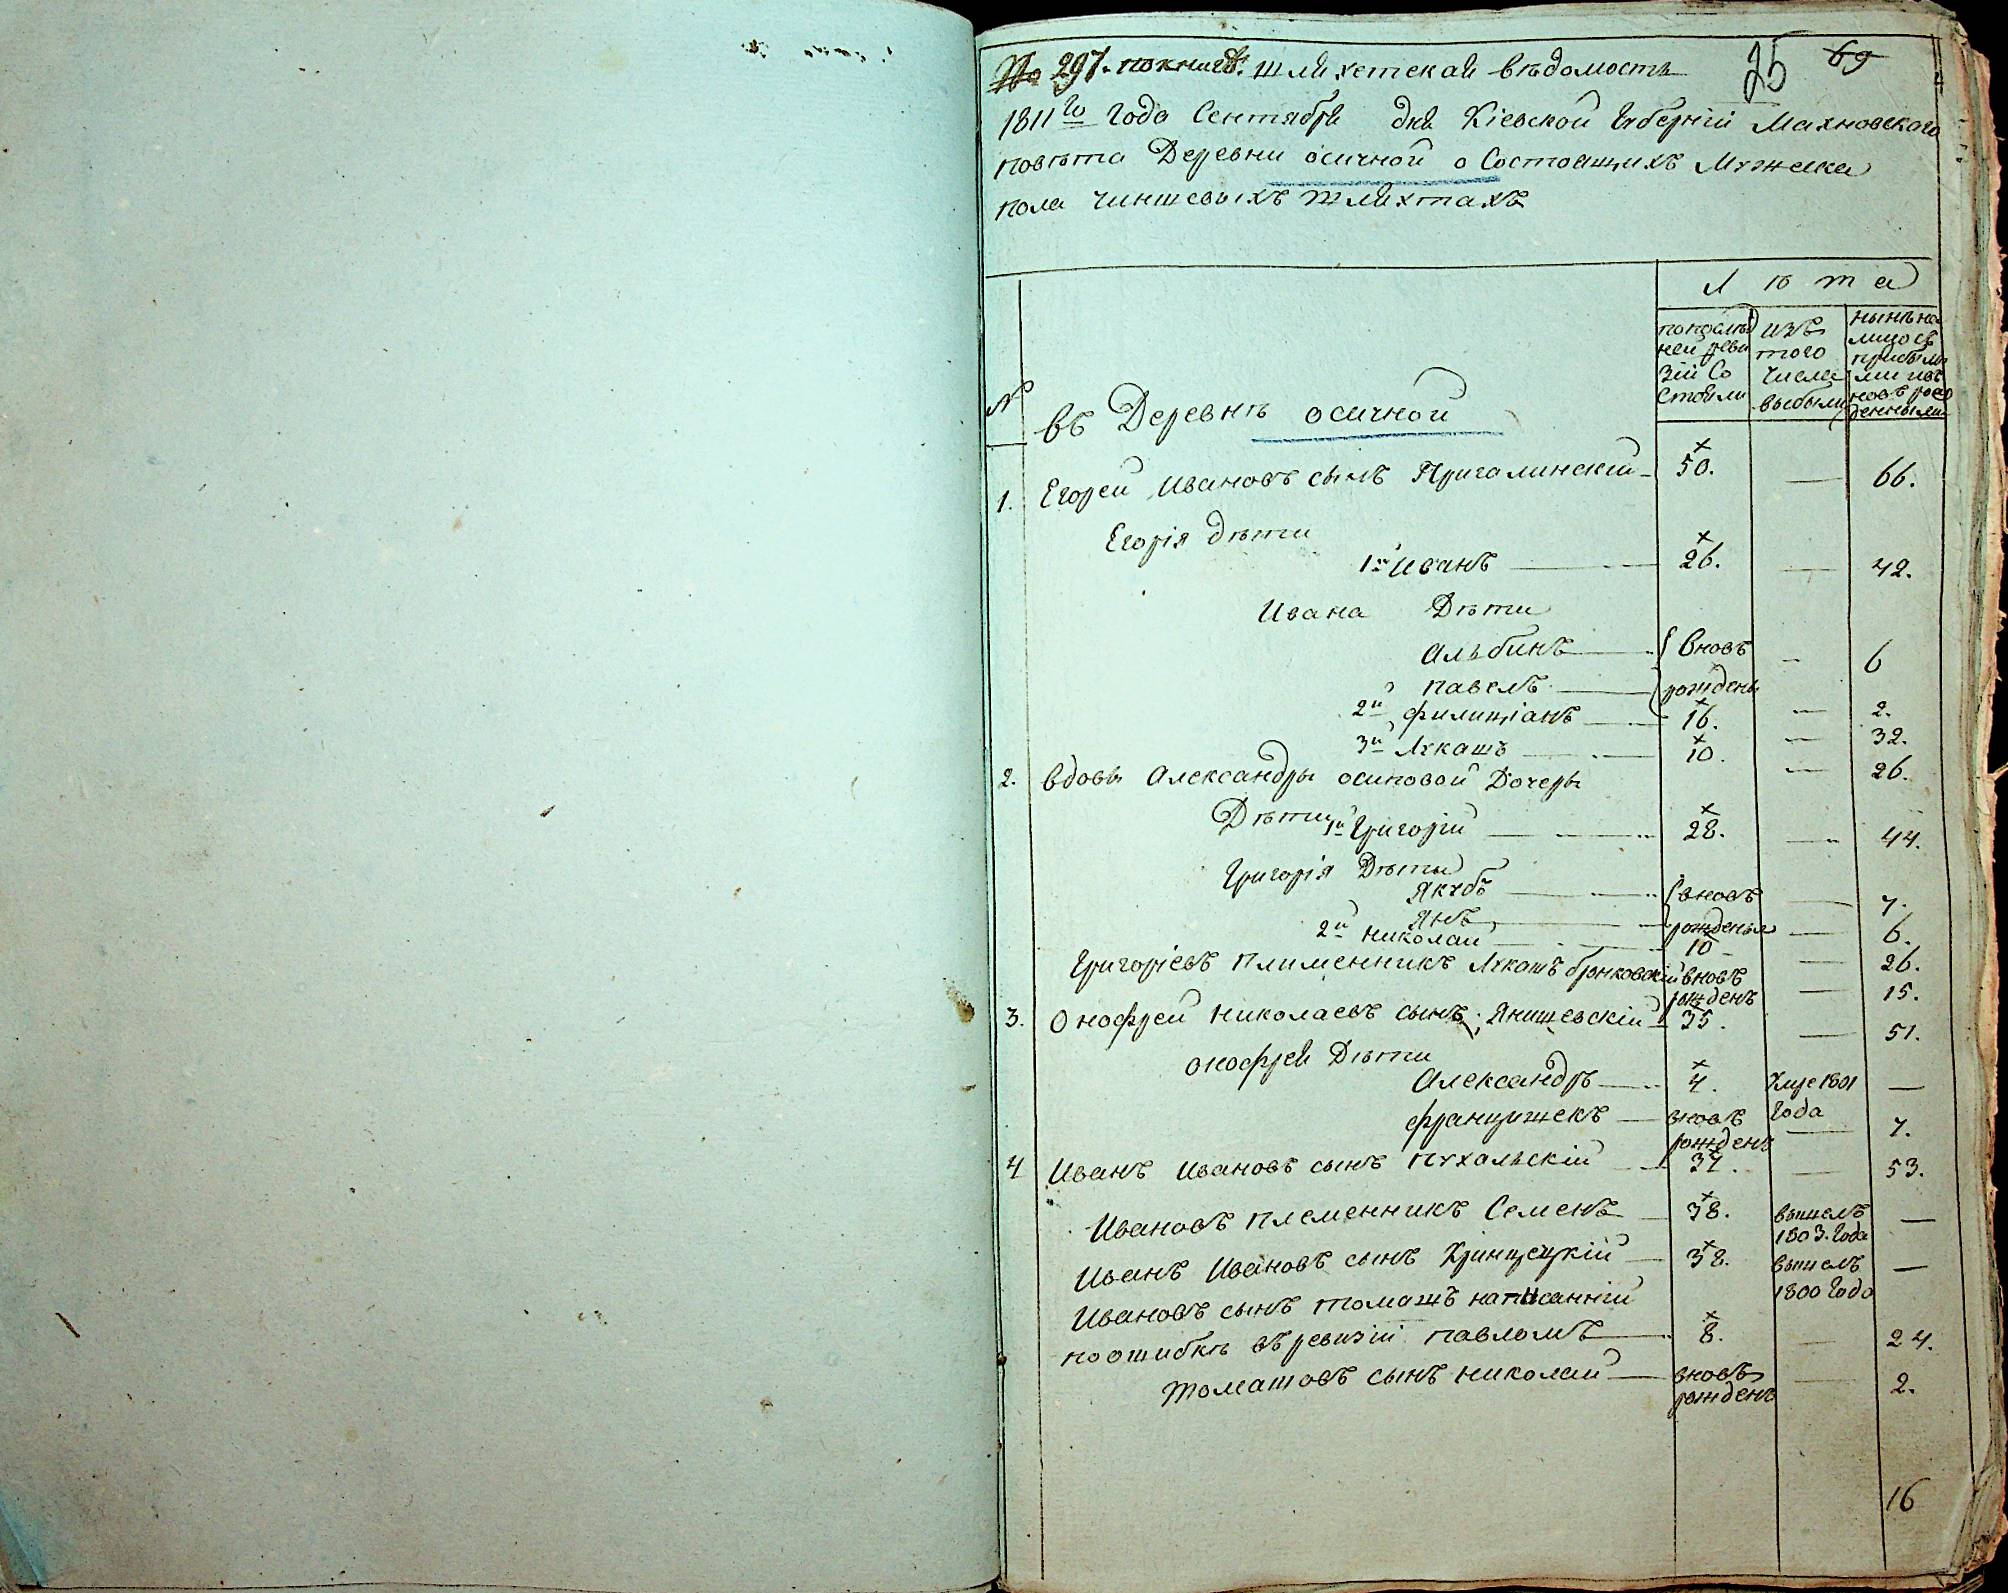 № 297. по книге. Шляхетская вѣдомость 25 69
1811го Года Сентября дня Кіевской Губерніи Махновскаго
повѣта Деревни осичной о Состоящихъ Мужеска
пола чиншевыхъ шляхтахъ
Лѣта
№
въ Деревнѣ осичной
по послѣдней ревизіи Состояли
изъ того числа выбыли
нынѣ на лицо съ прибылыми и въновь рожденными
1. Егорей Ивановъ сынъ Пригалинскій 50. — 66.
Егорія дѣти
1й Иванъ 26. — 42.
Ивана Дѣти
Альбинъ вновь — 6
Павелъ рождены — 2.
2й Филиціанъ 16. — 32.
3й Лукашъ 10. — 26.
2. Вдовы Александры осиповой Дочеры
Дѣти 1й Григорій 28. — 44.
Григорія Дѣты
Якубъ вновь — 7.
Янъ рожденыя — 6.
2й Николай 10 — 26.
Григоріевъ плименникъ Лукашъ вновь рожденъ — 15.
3. Онофрей Николаевъ сынъ Янишевскій 35. — 51.
онофрея Дѣти
Александръ 4. умре 1801 Года —
Францишекъ вновь рожденъ — 7.
4 Иванъ Ивановъ сынъ Пухальскій 37. — 53.
Ивановъ племенникъ Семенъ 38. вышелъ 1803. Года —
Иванъ Ивановъ сынъ 38. вышелъ 1800 Года —
Ивановъ сынъ томашъ написанній
по ошибкѣ въ ревизіи павломъ 8. — 24.
томашовъ сынъ николай вновь рожденъ — 2.
16